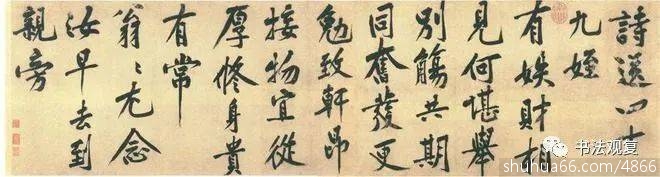 詩送四十
九姪
有娛財相
見何堪舉
別觴共期
同奮發更
勉致軒昂
接物宜從
厚修身貴
有常
翁〻尤念
汝早去到
親旁
书法观复
shuhua66.com/4866